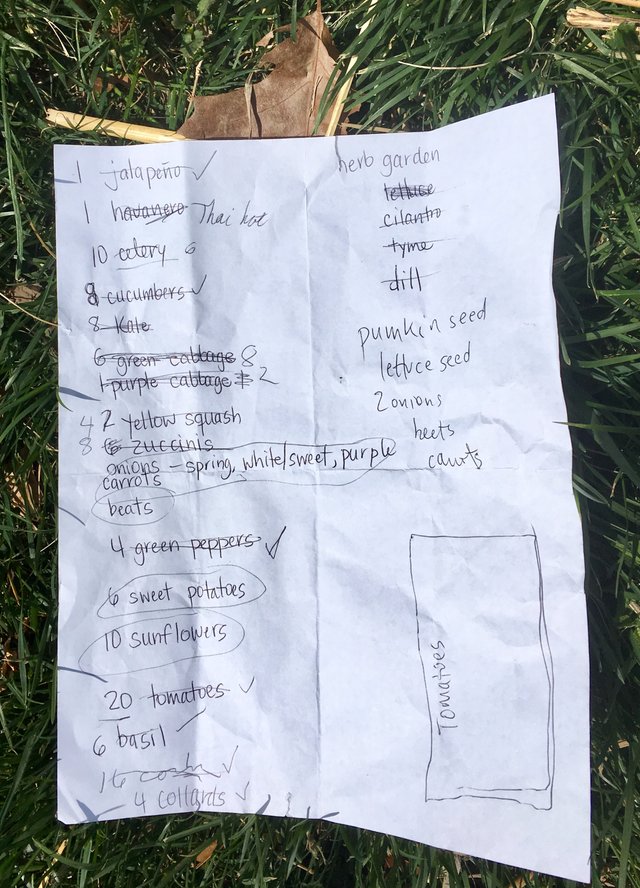 1 jalapeño ✓
1 havanero Thai hot
10 celery 6
8 cucumbers ✓
8 Kale
6 green cabbage 8
1 purple cabbage 2
4 2 yellow squash
8 6 zuccinis
onions - spring, white/sweet, purple
carrots
beats
4 green peppers ✓
6 sweet potatoes
10 sunflowers
20 tomatoes ✓
6 basil ✓
16 ✓
4 collards ✓
herb garden
lettuse
cilantro
tyme
dill
pumkin seed
lettuce seed
2 onions
beets
Tomatoes